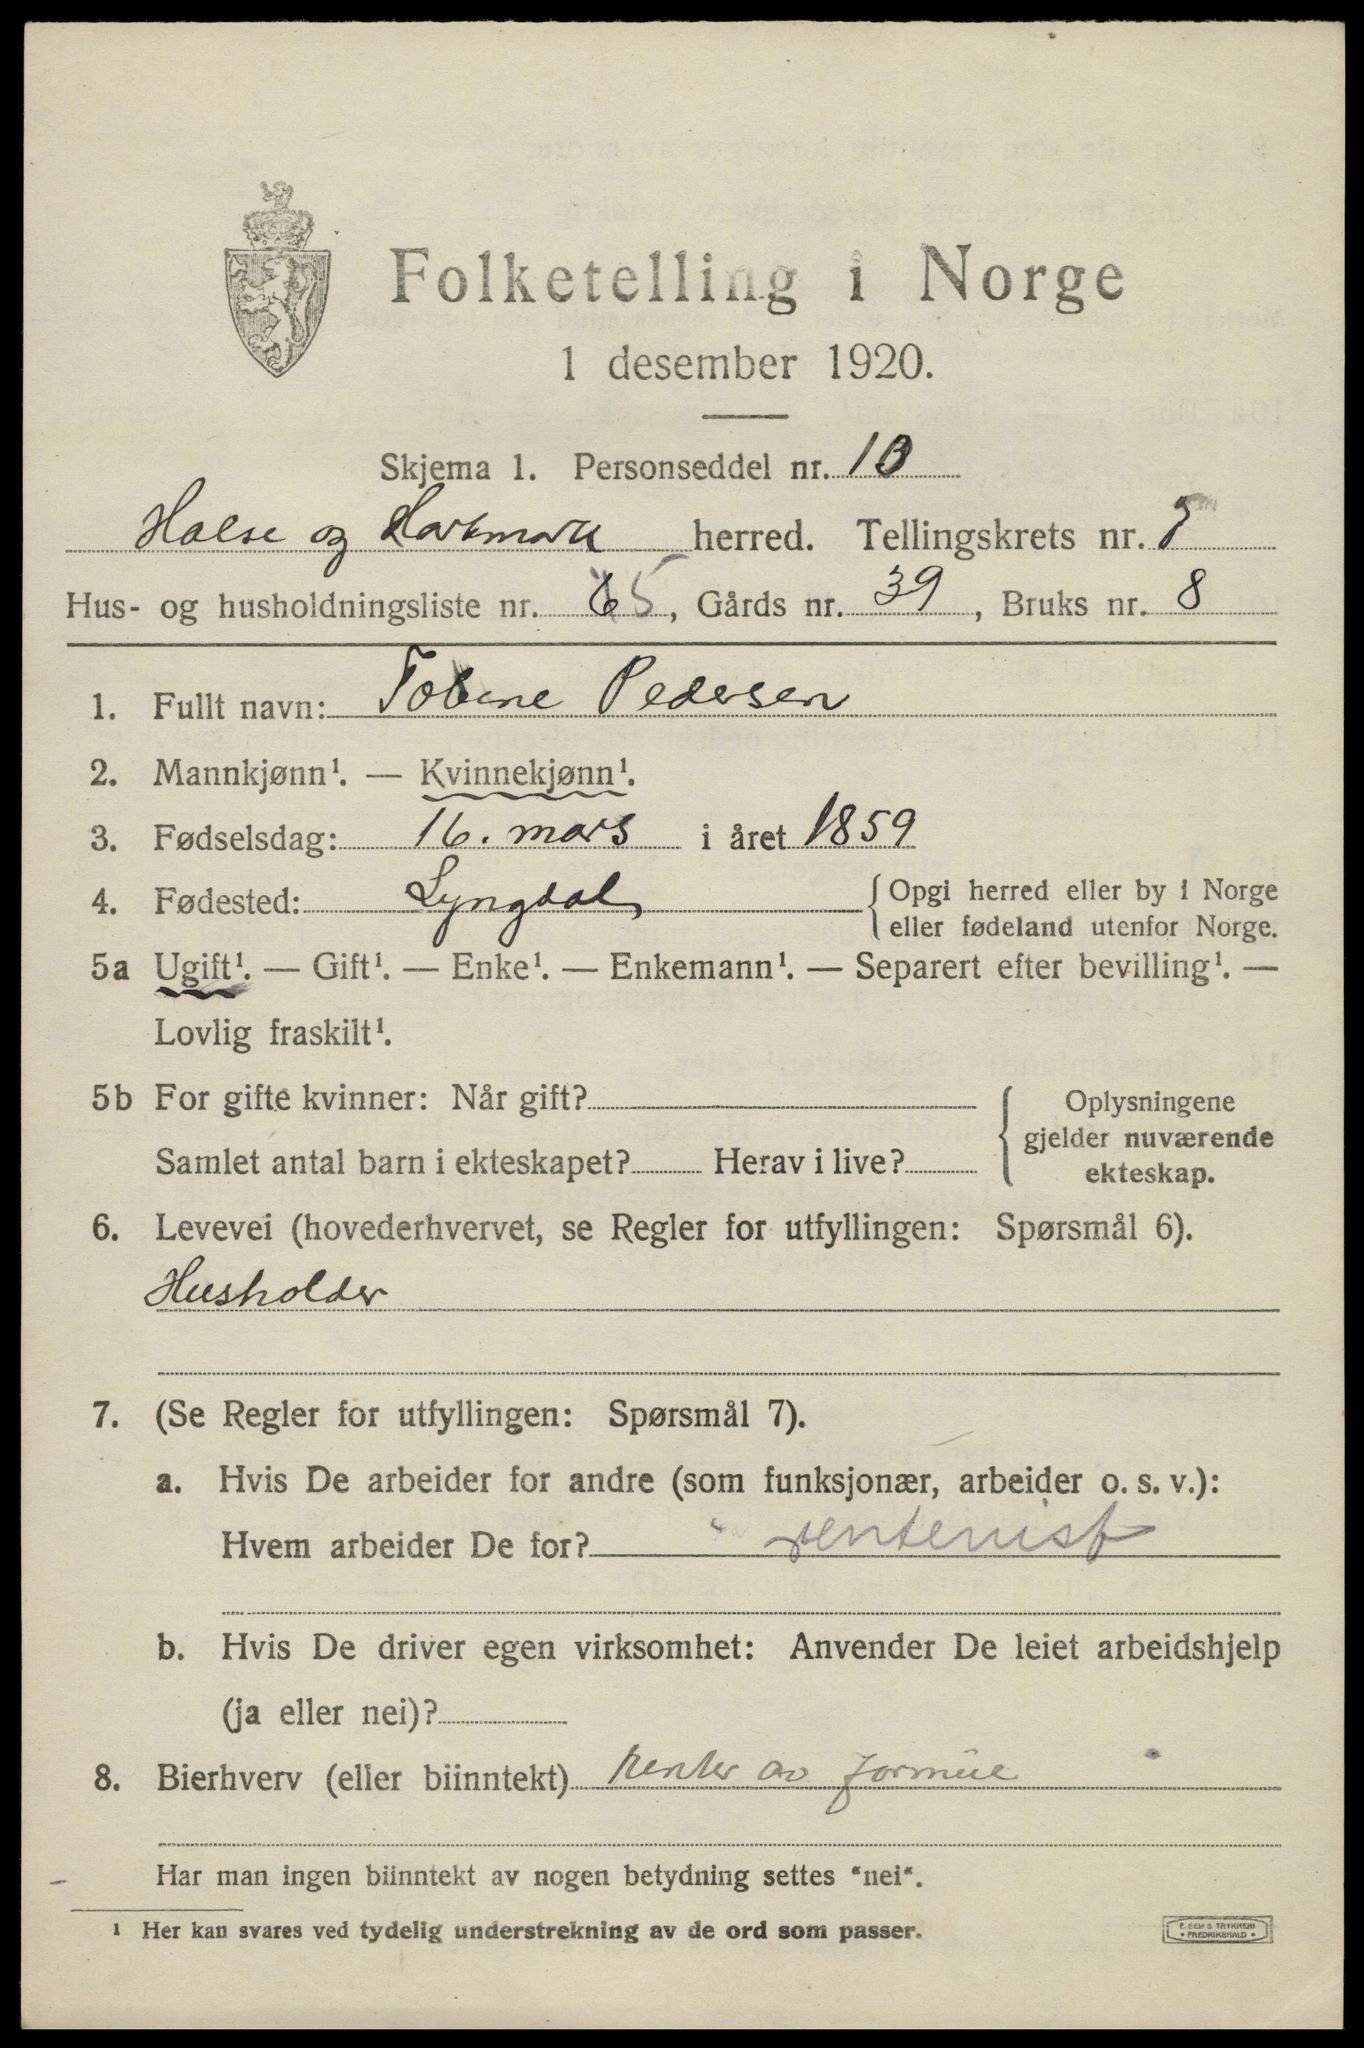 Folketelling i Norge
1 desember 1920.
Skjema 1. Personseddel nr. 10
Halse og Harkmark herred. Tellingskrets nr. 7
Hus- og husholdningsliste nr. 65, Gårds nr. 39, Bruks nr. 8
1. Fullt navn: Tobine Pedersen
2. Mannkjønn¹. — Kvinnekjønn¹.
3. Fødselsdag: 16. mars i året 1859
4. Fødested: Lyngdal {Opgi herred eller by i Norge
eller fødeland utenfor Norge.
5a Ugift¹. — Gift¹. — Enke¹. — Enkemann¹. — Separert efter bevilling¹. —
Lovlig fraskilt¹.
5b For gifte kvinner: Når gift?
Samlet antal barn i ekteskapet? Herav i live?
{Oplysningene
gjelder nuværende
ekteskap.
6. Levevei (hovederhvervet, se Regler for utfyllingen: Spørsmål 6).
Husholder
7. (Se Regler for utfyllingen: Spørsmål 7).
a. Hvis De arbeider for andre (som funksjonær, arbeider o. s. v.):
Hvem arbeider De for? rentenist
b. Hvis De driver egen virksomhet: Anvender De leiet arbeidshjelp
(ja eller nei)?
8. Bierhverv (eller biinntekt) Renter av formue
Har man ingen biinntekt av nogen betydning settes "nei".
¹ Her kan svares ved tydelig understrekning av de ord som passer.
E. SEM'S TRYKKERI
• FREDRIKSHALD •